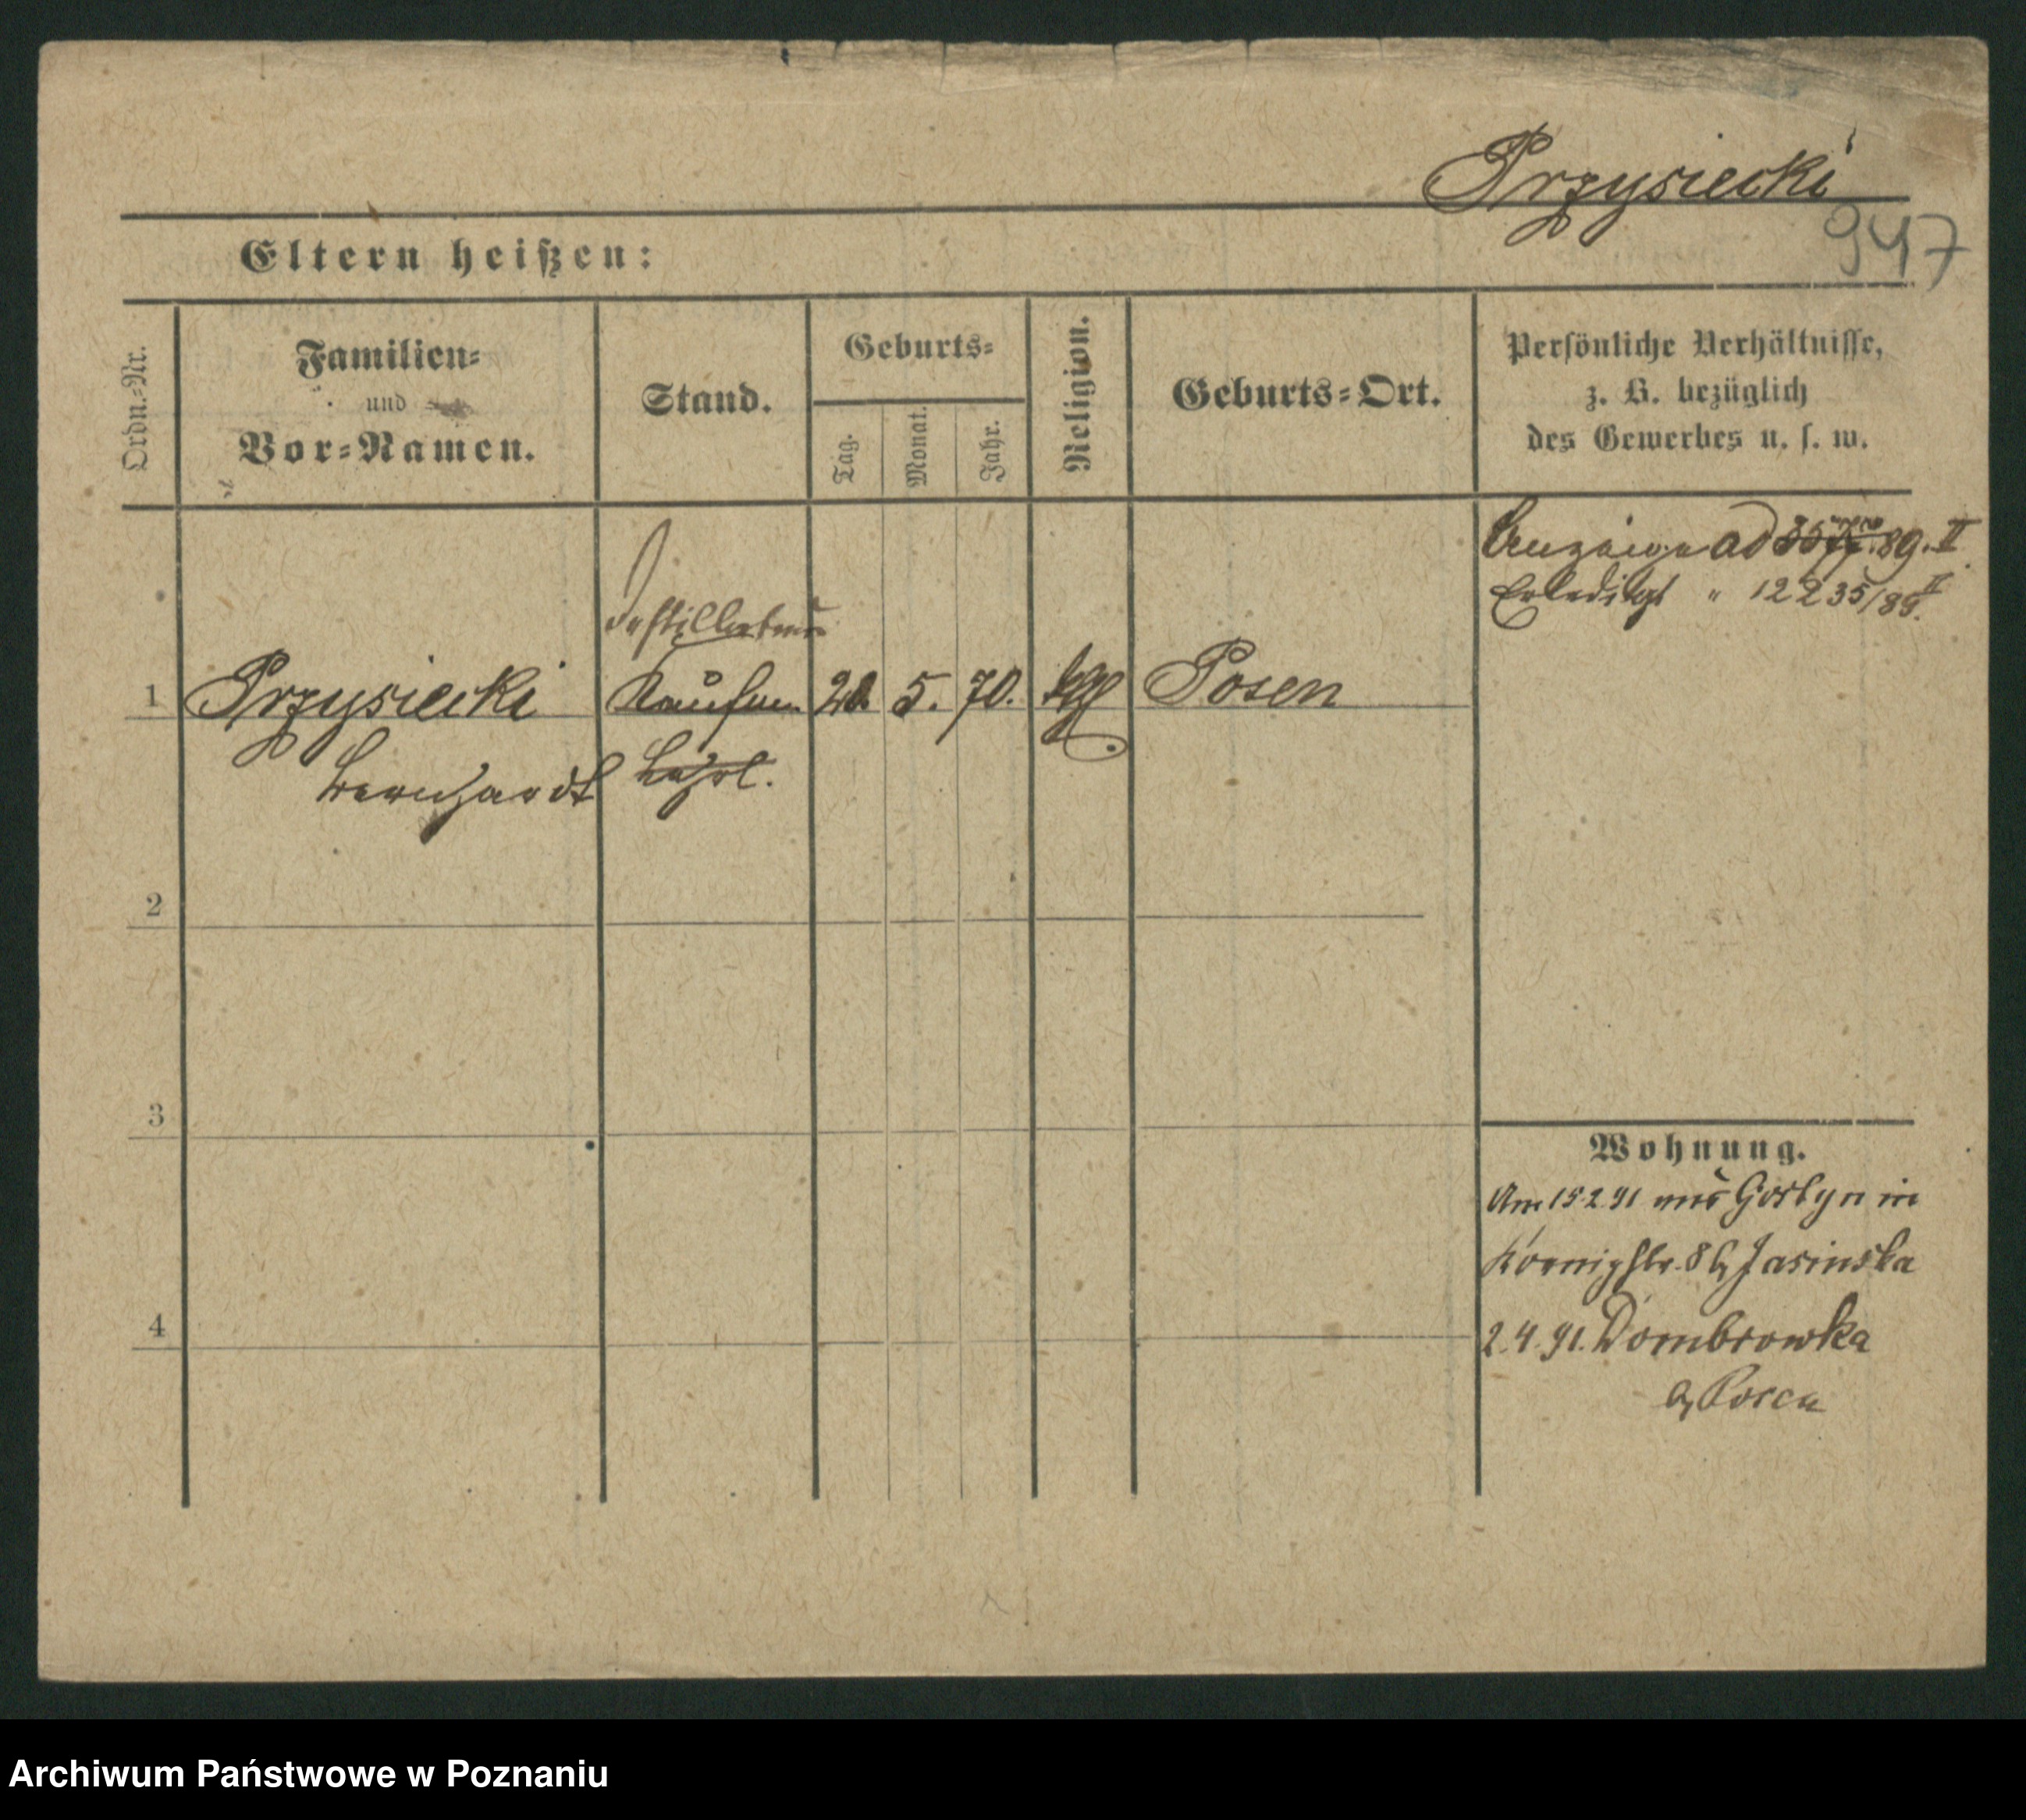 Przysiecki
947
Eltern heißen:
Ordn.-Nr.
Familien-
und
Vor-Namen.
Stand.
Geburts-
Tag.
Monat.
Jahr.
Religion.
Geburts-Ort.
Persönliche Verhältnisse,
z. B. bezüglich
des Gewerbes u. s. w.
Anzeige ad 89. II
Erledigt " 12235/89 II
Destillateur
1 Przysiecki Kaufm. 20. 5. 70. Posen
Bernhardt Lehrl.
2
3
4
Wohnung.
Am 15.2.91 aus Gostyn in
Koenigstr. 8 b/ Jasinska
2.4.91. Dombrowka
b/ Posen
Archiwum Państwowe w Poznaniu